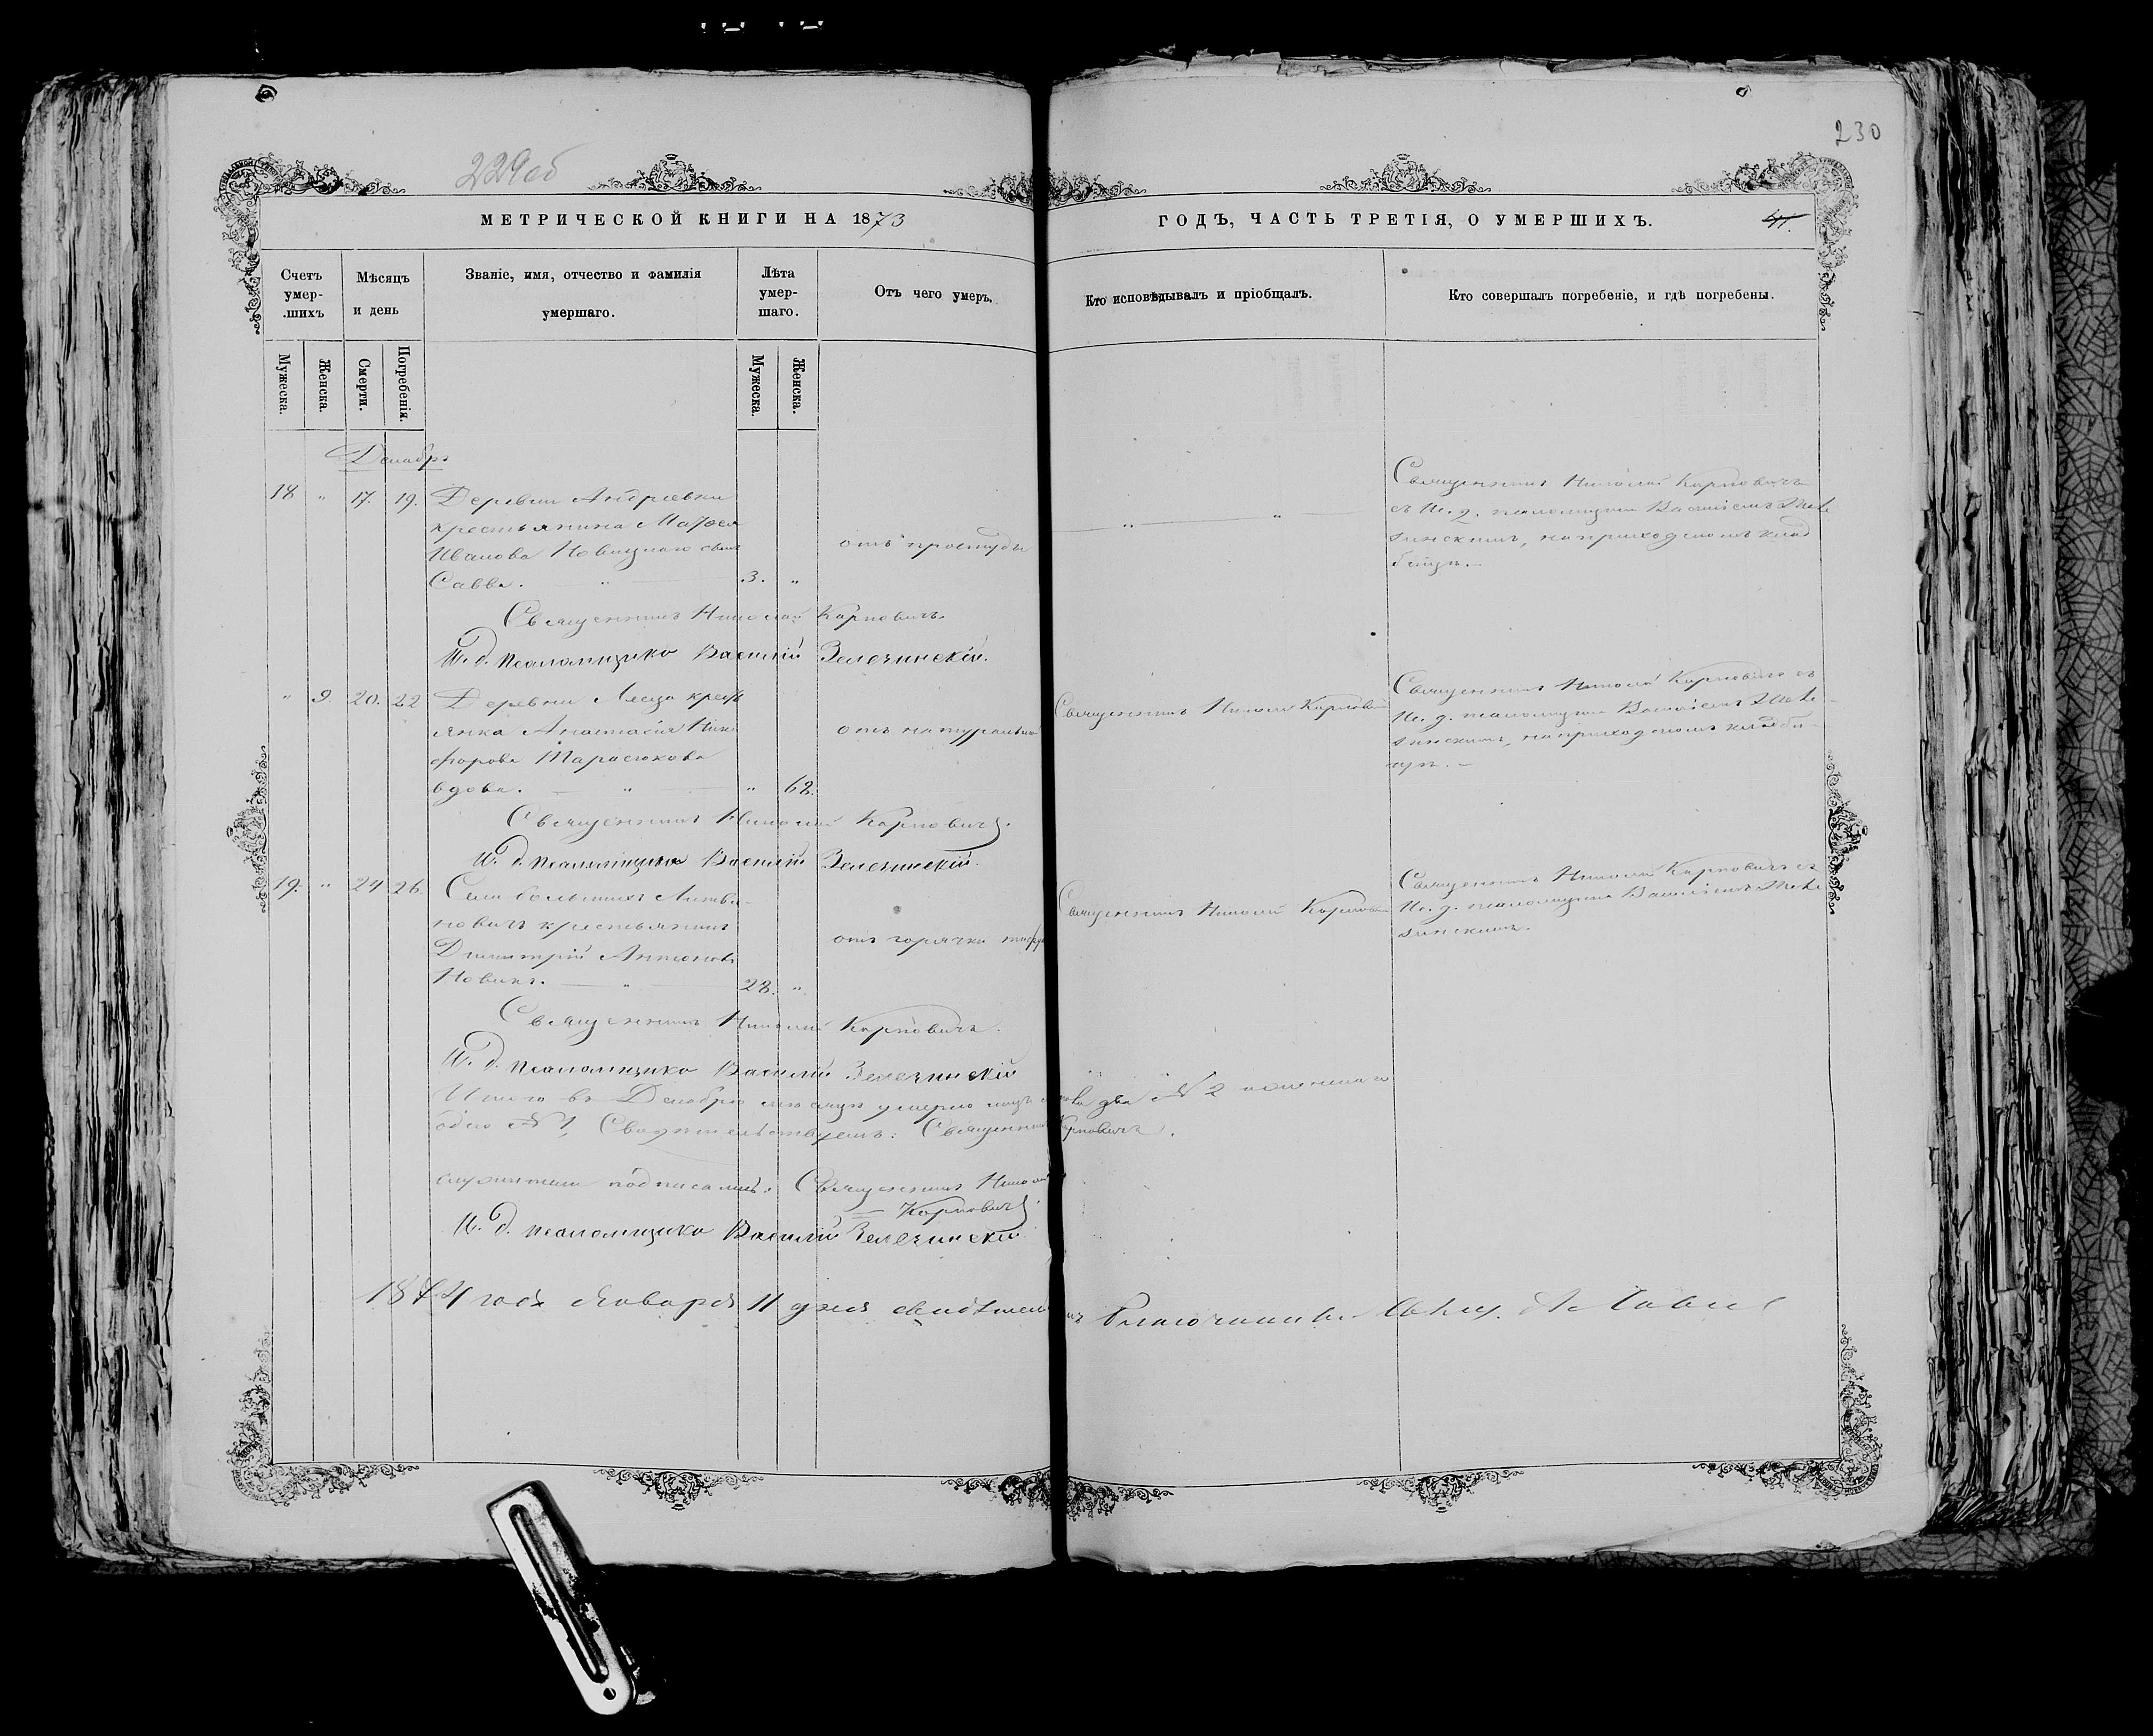 229об
230
МЕТРИЧЕСКОЙ КНИГИ НА 1873
ГОДЪ, ЧАСТЬ ТРЕТІЯ, О УМЕРШИХЪ.
41.
Счетъ умер-.шихъ
Мѣсяцъ и день
Званіе, имя, отчество и фамилія умершаго.
Лѣта умер-шаго.
Отъ чего умеръ.
Кто исповѣдывалъ и пріобщалъ.
Кто совершалъ погребеніе, и гдѣ погребены.
Мужеска.
Женска.
Смерти.
Погребенія.
Мужеска.
Женска.
Декабрь
18 " 17. 19. Деревни Андреевки
крестьянина Матѳея
Иванова Новицкаго сынъ
Савва. " 3. "
отъ простуды
" "
Священникъ Николай Карповичъ
съ И. д. псаломщика Василіемъ Зеле-
зинскимъ, на приходскомъ клад
бищѣ.
Священникъ Николай Карповичъ.
И. д. псаломщика Василій Зелезинскій.
" 9. 20. 22 Деревни крест
янка Анастасія Ники
форова Тарасюкова
вдова. " " 68.
отъ натуральной
Священникъ Николай Карповичъ
Священникъ Николай Карповичъ съ
И. д. псаломщика Василіемъ Зеле-
зинскимъ, на приходскомъ кладби-
щѣ.
Священникъ Николай Карповичъ.
И. д. псаломщика Василій Зелезинскій.
19. " 24 26. Села большихъ Литви-
новичъ крестьянинъ
Димитрій Антоновъ
Новикъ. " 28. "
отъ горячки
Священникъ Николай Карповичъ
Священникъ Николай Карповичъ съ
И. д. псаломщика Василіемъ Зеле-
зинскимъ.
Священникъ Николай Карповичъ.
И. д. псаломщика Василій Зелезинскій
Итого въ Декабрѣ мѣсяцѣ умерло два № 2 женскаго
одно № 1, Священникъ Карповичъ.
подписались: Священникъ Николай
Карповичъ.
И. д. псаломщика Василій Зелезинскій
1874 года Января 11 дня Благочинный